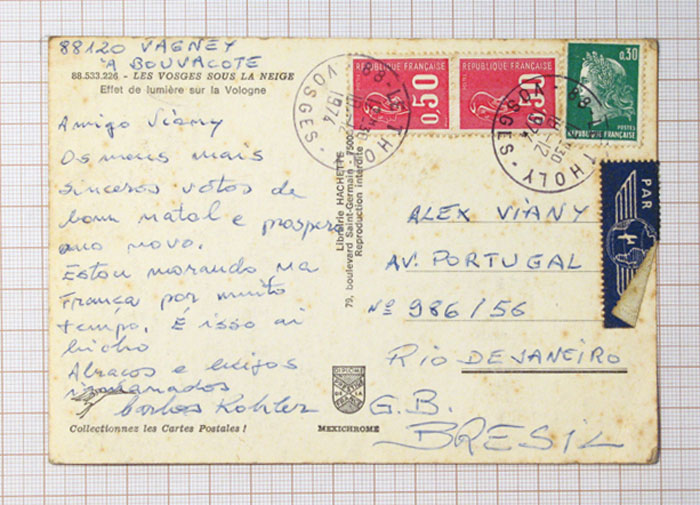 88120 VAGNEY
A BOUVACOTE
88.533.226 - LES VOSGES SOUS LA NEIGE
Effet de lumière sur la Vologne
RÉPUBLIQUE FRANÇAISE
0,50
RÉPUBLIQUE FRANÇAISE
0,50
0,30
POSTES
RÉPUBLIQUE FRANÇAISE
LE THOLY
VOSGES
1974
LE THOLY
VOSGES
1974
PAR
Amigo Viany
Os meus mais
sinceros votos de
bom natal e prospero
ano novo.
Estou morando na
França por muito
tempo. É isso ai
bicho
Abraços e beijos
Carlos Kohler
Collectionnez les Cartes Postales !
Librairie HACHETTE
79, boulevard Saint-Germain - 75005
Reproduction interdite
DIPLOME
PRESTIGE
DE LA
FRANCE
MEXICHROME
ALEX VIANY
AV. PORTUGAL
Nº 986/56
RIO DE JANEIRO
G.B.
BRESIL